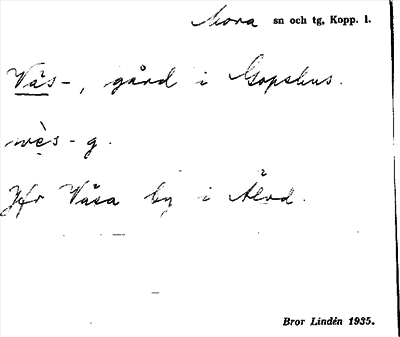 Mora sn och tg, Kopp. l.
Vås-, gård i Gopshus.
Jfr Våsa by i Älvd.
Bror Lindén 1935.